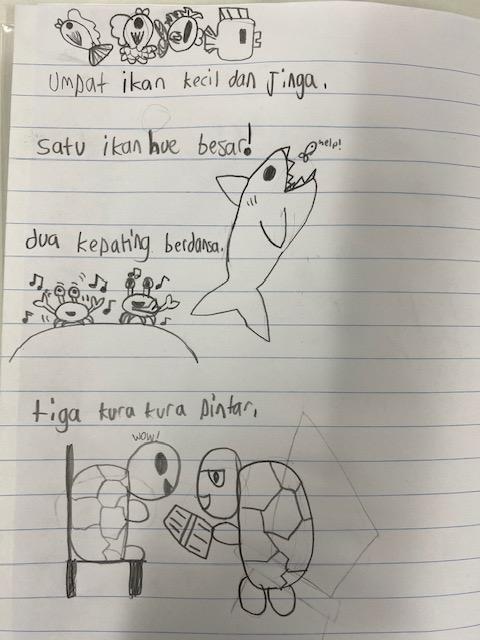 Umpat ikan kecil dan Jinga.
Satu ikan hue besar!
help!
dua kepating berdansa.
tiga kura kura pintar.
wow!